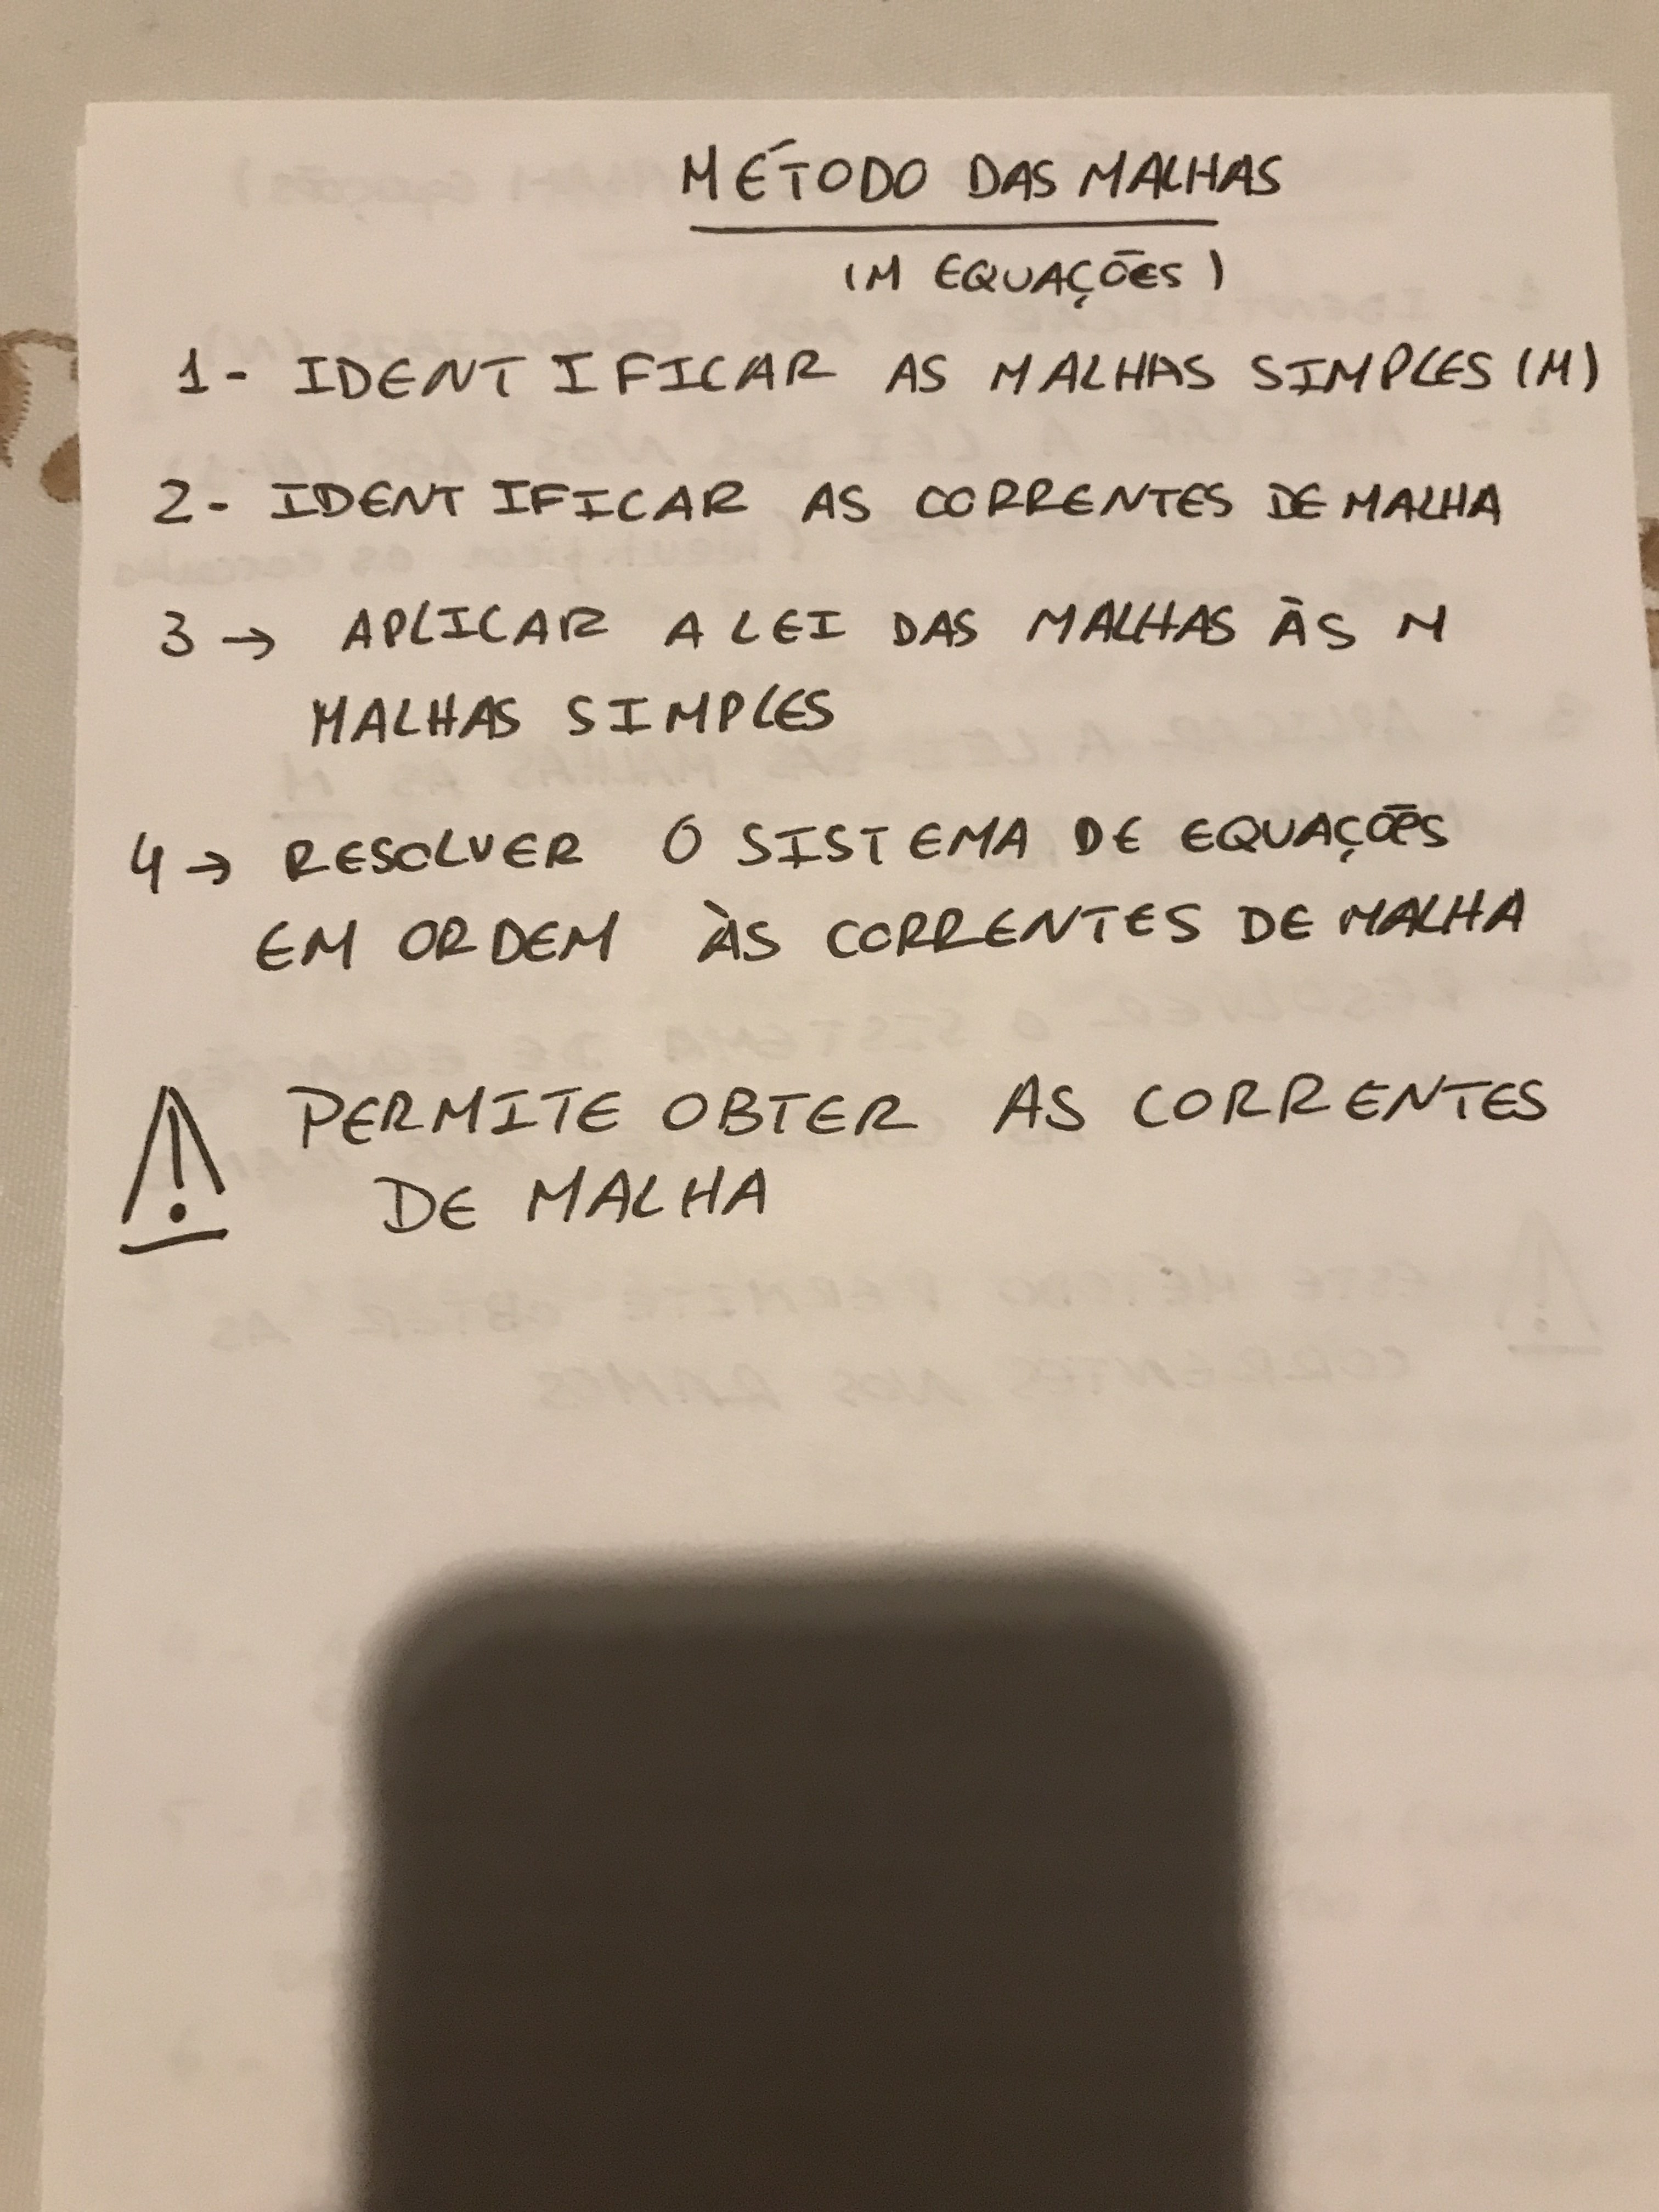 MÉTODO DAS MALHAS
(M EQUAÇÕES)
1- IDENTIFICAR AS MALHAS SIMPLES (M)
2- IDENTIFICAR AS CORRENTES DE MALHA
3 → APLICAR A LEI DAS MALHAS ÀS M
MALHAS SIMPLES
4 → RESOLVER O SISTEMA DE EQUAÇÕES
EM ORDEM ÀS CORRENTES DE MALHA
⚠ PERMITE OBTER AS CORRENTES
DE MALHA